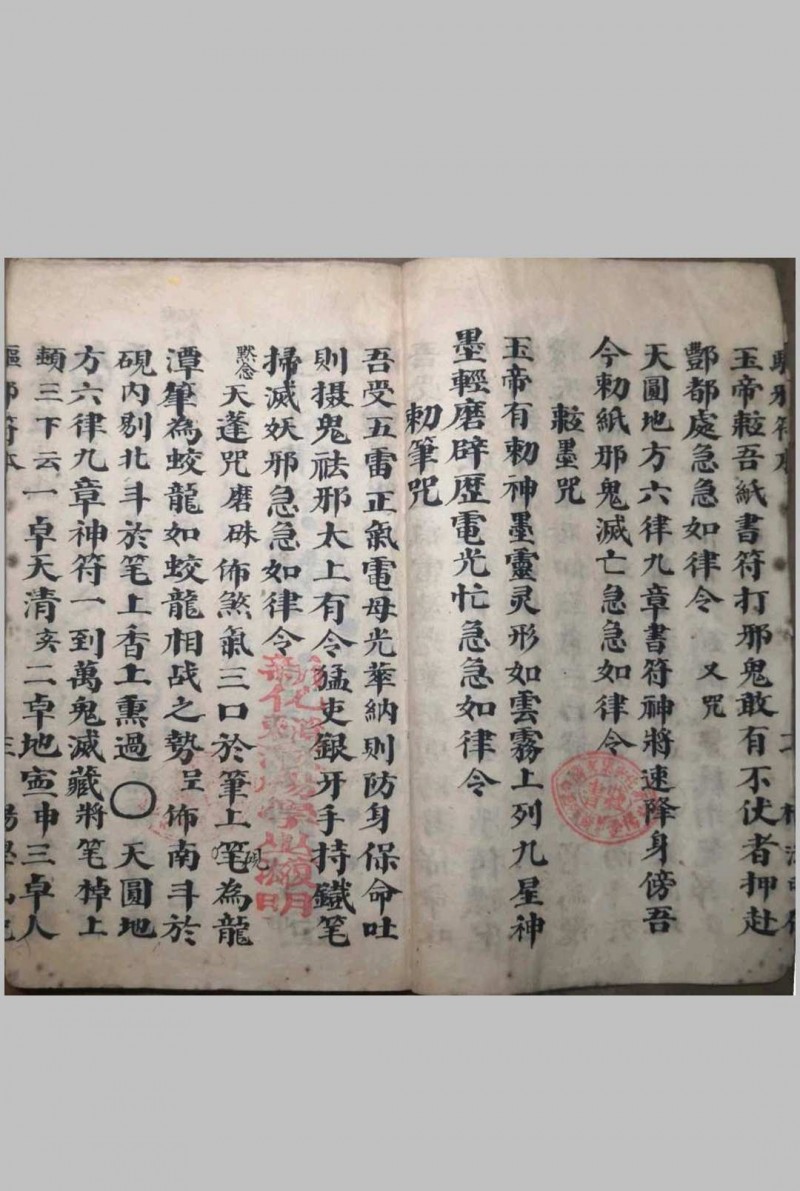 玉帝敕吾紙書符打邪鬼敢有不伏者押赴
酆都處急急如律令 又咒
天圓地方六律九章書符神將速降身傍吾
今勅紙邪鬼滅亡急急如律令
敕墨咒
玉帝有勅神墨靈灵形如雲霧上列九星神
墨輕磨辟歷電光忙急急如律令
勅筆咒
吾受五雷正氣電母光華納則防身保命吐
則摄鬼祛邪太上有令猛吏銀牙手持鐵笔
掃滅妖邪急急如律令
默念天蓬咒磨硃佈煞氣三口於筆上笔為龍
潭筆為蛟龍如蛟龍相战之勢呈佈南斗於
硯內剔北斗於笔上香上熏過〇天圓地
方六律九章神符一到萬鬼滅藏將笔棹上
頓三下云一卓天清亥二卓地寅申三卓人